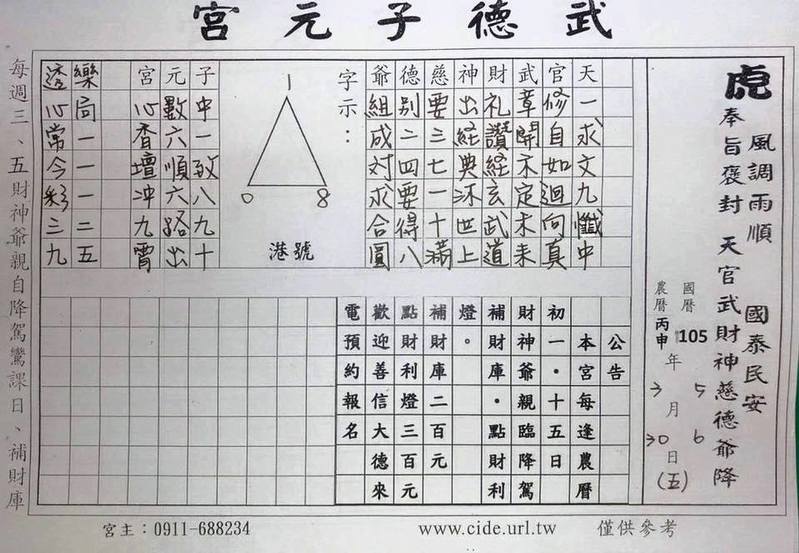 武德子元宮
虎
風調雨順 國泰民安
奉旨褒封 天官武財神慈德爺降
國曆 105 年 5 月 6 日 (五)
農曆 丙申 年 3 月 30 日
天一求文九懺中
官修自如迴向真
武章開不定未来
財礼讚経玄武道
神出経典沐世上
慈要三七一十滿
德别二四要得八
爺組成対求合圓
字示：
1
0 8
港號
子中一致八九十
元數六順六路出
宮心香壇冲九霄
樂局一一一二五
透心常今彩三九
公告
本宮每逢農曆
初一・十五日
財神爺親臨降駕
補財庫・點財利
燈。
補財庫二百元
點財利燈三百元
歡迎善信大德來
電預約報名
每週三、五財神爺親自降駕鸞課日、補財庫
宮主：0911-688234 www.cide.url.tw 僅供參考